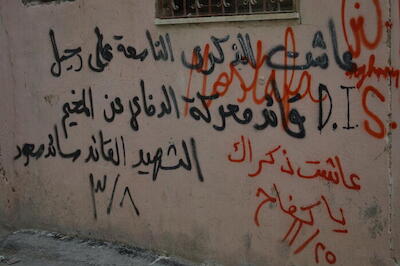 عاشت الذكرى التاسعة على رحيل
قائد معركة الدفاع عن المخيم
الشهيد القائد سائد سعود
٣/٨
D.I.S.
عاشت ذكراك
يا كفاح
١١/٢٥